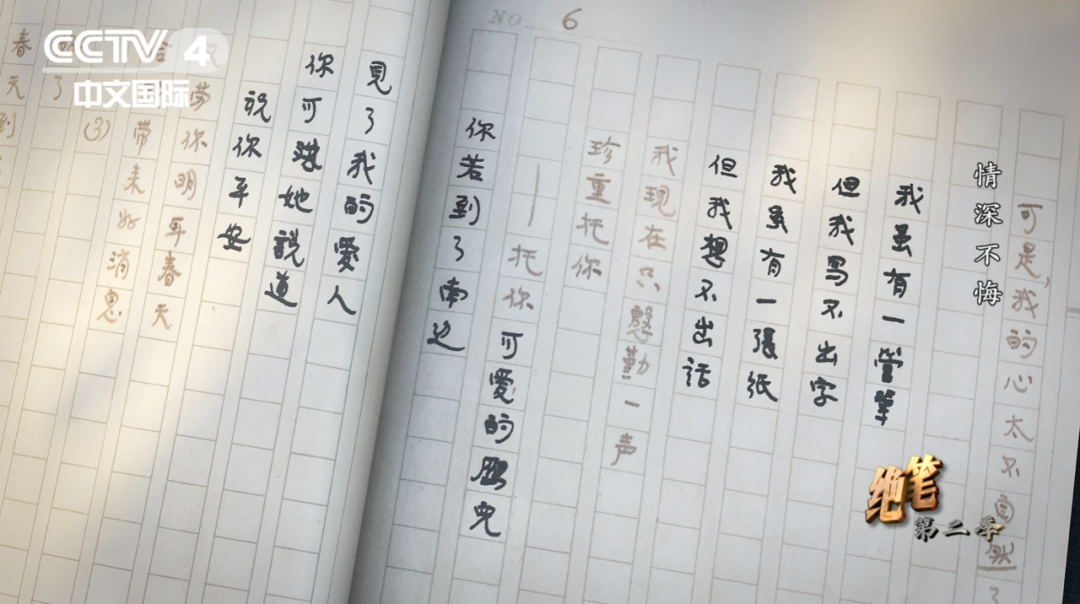 CCTV 4
中文国际
NO 6
可是,我的心太不自然了
情深不悔
我虽有一管筆
但我写不出字
我虽有一張紙
但我想不出話
我现在只慇勤一声
珍重托你
——托你可愛的雁兒
你若到了南边
見了我的愛人
你可她說道
祝你平安
劳你明年春天
带来好消息
(3)
了
春天到
绝笔
第二季